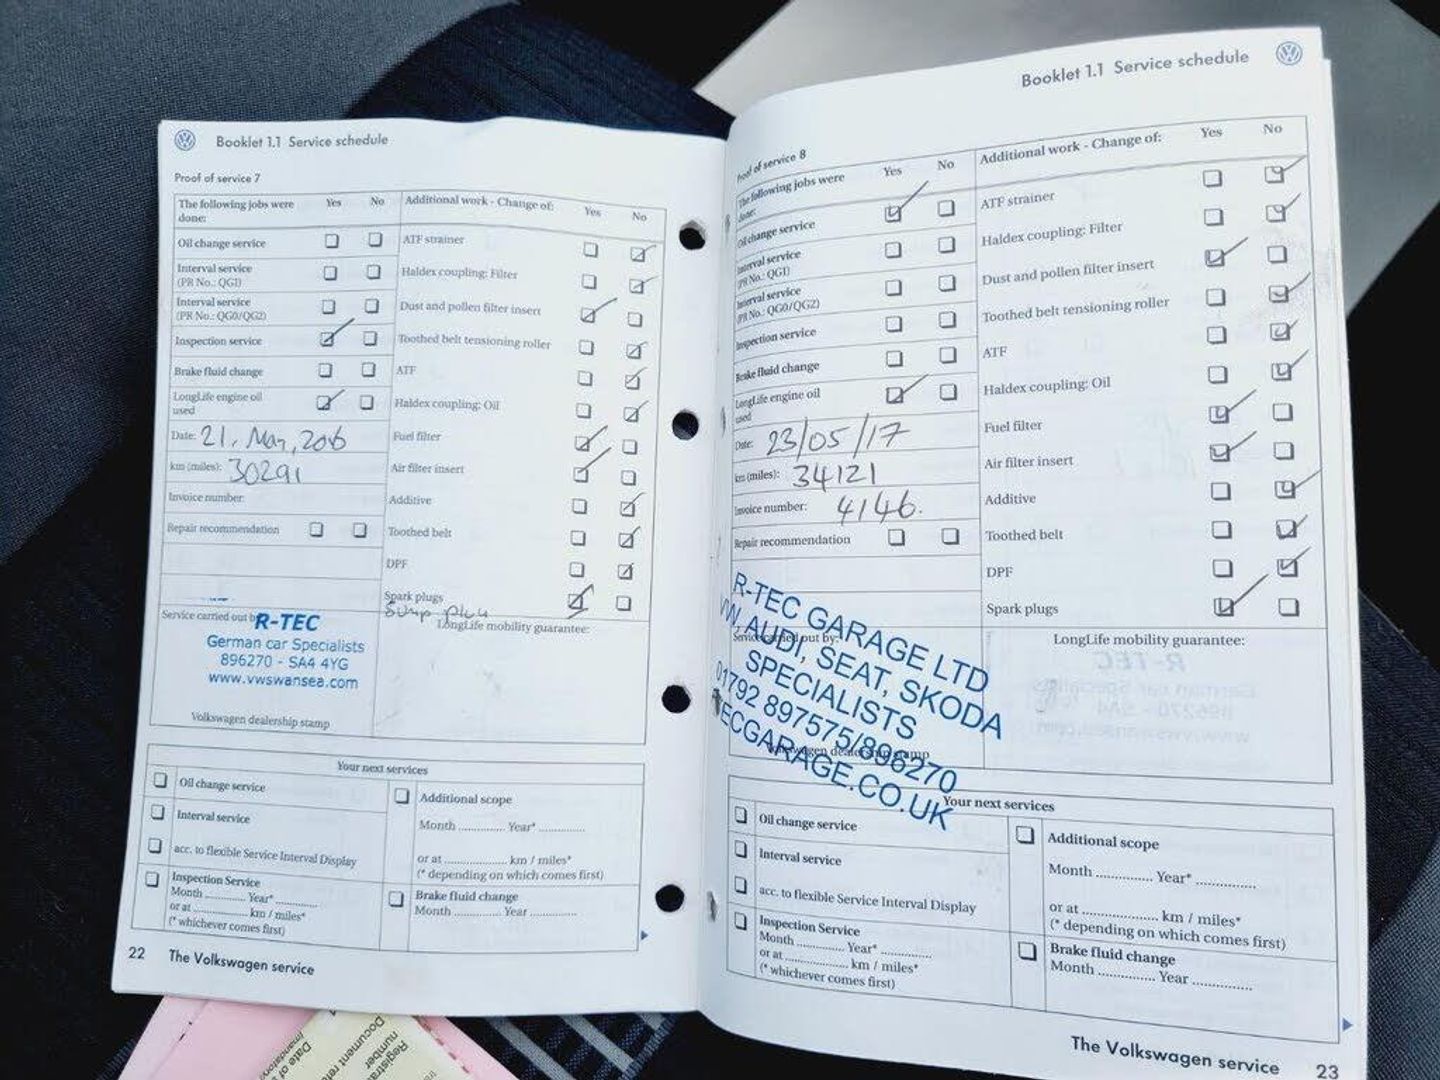 Booklet 1.1 Service schedule
Proof of service 7
The following jobs were done: Yes No
Oil change service
Interval service
(PR No.: QG1)
Interval service
(PR No.: QG0/QG2)
Inspection service
Brake fluid change
LongLife engine oil
used
Date: 21, May, 2016
km (miles): 30291
Invoice number:
Repair recommendation
Additional work - Change of: Yes No
ATF strainer
Haldex coupling: Filter
Dust and pollen filter insert
Toothed belt tensioning roller
ATF
Haldex coupling: Oil
Fuel filter
Air filter insert
Additive
Toothed belt
DPF
Spark plugs
Sump plug
Service carried out by
R-TEC
German car Specialists
896270 - SA4 4YG
www.vwswansea.com
Volkswagen dealership stamp
LongLife mobility guarantee:
Your next services
Oil change service
Interval service
acc. to flexible Service Interval Display
Inspection Service
Month ............ Year* ............
or at ............ km / miles*
(* whichever comes first)
Additional scope
Month ............ Year* ............
or at ............ km / miles*
(* depending on which comes first)
Brake fluid change
Month ............ Year ............
22 The Volkswagen service
Booklet 1.1 Service schedule
Proof of service 8
The following jobs were
done: Yes No
Oil change service
Interval service
(PR No.: QG1)
Interval service
(PR No.: QG0/QG2)
Inspection service
Brake fluid change
LongLife engine oil
used
Date: 23/05/17
km (miles): 34121
Invoice number: 4146.
Repair recommendation
Additional work - Change of: Yes No
ATF strainer
Haldex coupling: Filter
Dust and pollen filter insert
Toothed belt tensioning roller
ATF
Haldex coupling: Oil
Fuel filter
Air filter insert
Additive
Toothed belt
DPF
Spark plugs
Service carried out by:
R-TEC GARAGE LTD
VW, AUDI, SEAT, SKODA
SPECIALISTS
01792 897575/896270
ECGARAGE.CO.UK
Volkswagen dealership stamp
LongLife mobility guarantee:
Your next services
Oil change service
Interval service
acc. to flexible Service Interval Display
Inspection Service
Month ............ Year* ............
or at ............ km / miles*
(* whichever comes first)
Additional scope
Month ............ Year* ............
or at ............ km / miles*
(* depending on which comes first)
Brake fluid change
Month ............ Year ............
The Volkswagen service 23
Date of
Document
number